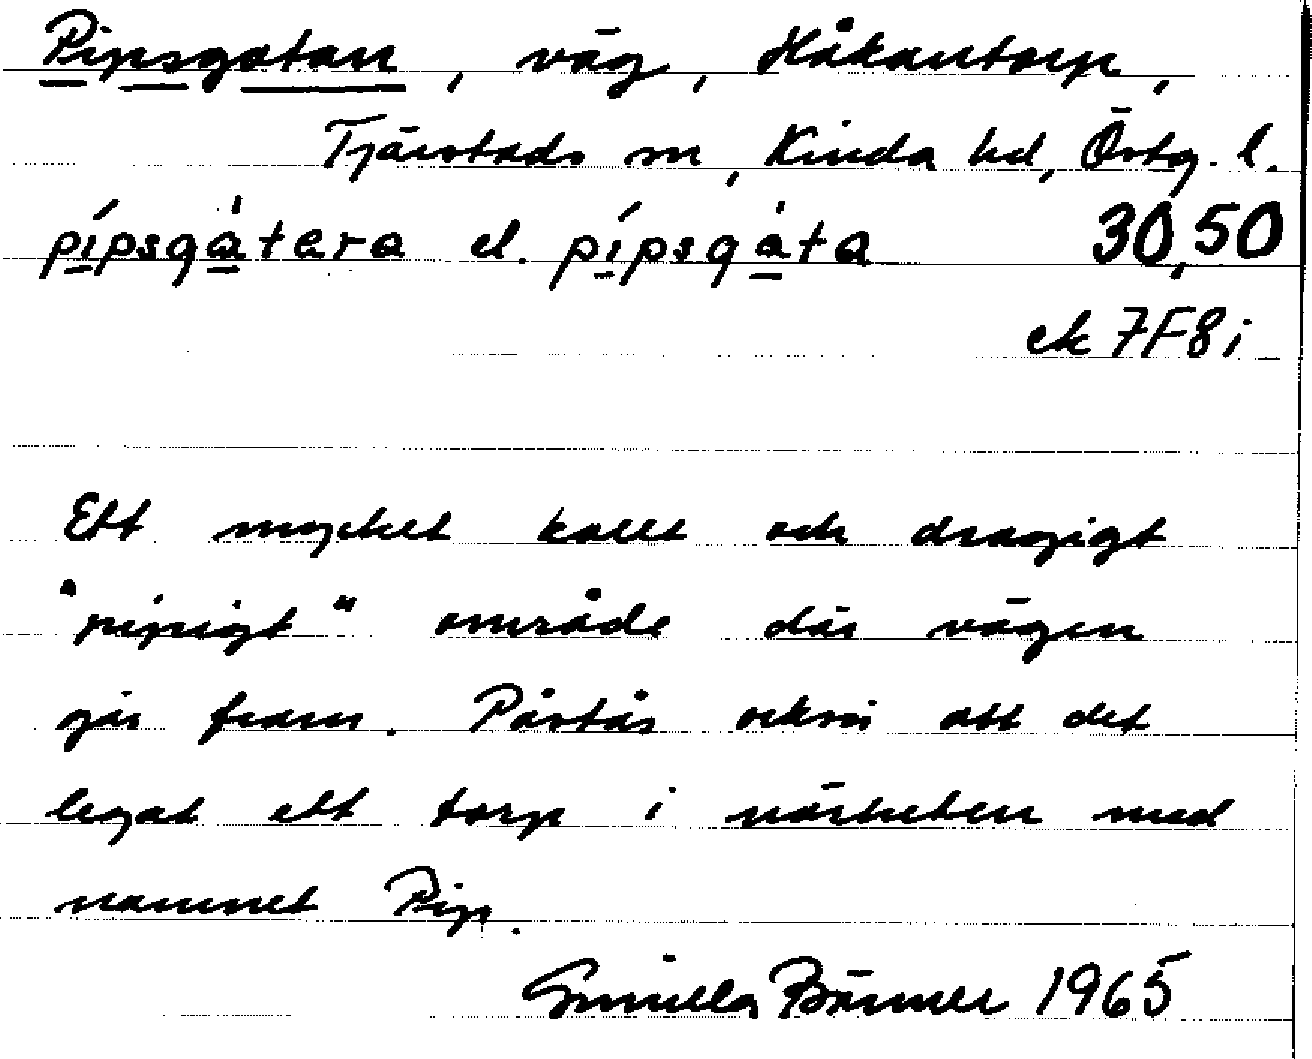 Pipsgatan, väg, Håkantorp,
Tjärstads sn, Kinda hd, Östg. l.
pípsgàtera el. pípsgàta 30,50
ek 7F8i
Ett mycket kallt och dragigt
"pipigt" område där vägen
går fram. Påstås också att det
legat ett torp i närheten med
namnet Pip.
Gunilla Bänner 1965